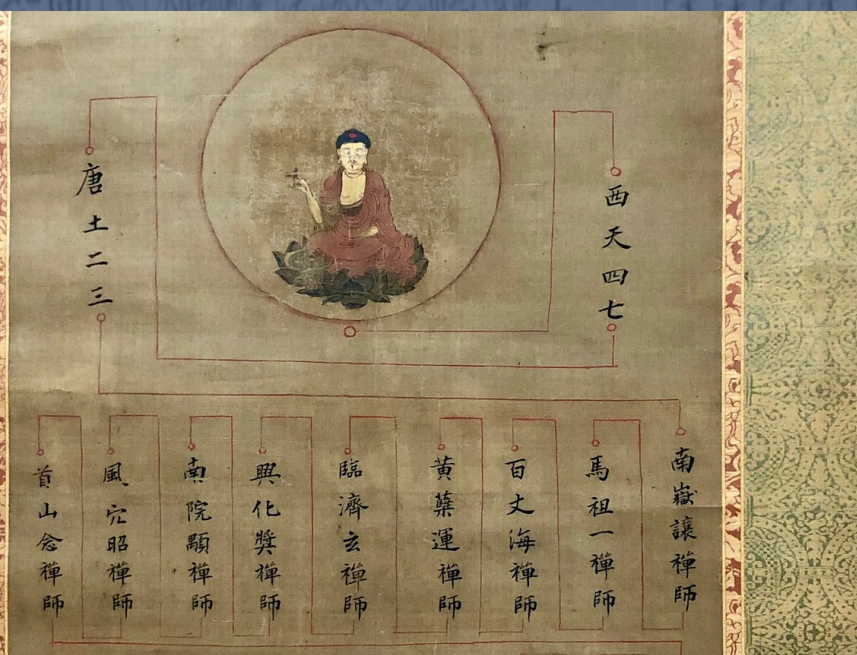 西天四七
唐土二三
南嶽讓禪師
馬祖一禪師
百丈海禪師
黃蘗運禪師
臨濟玄禪師
興化獎禪師
南院顒禪師
風穴昭禪師
首山念禪師